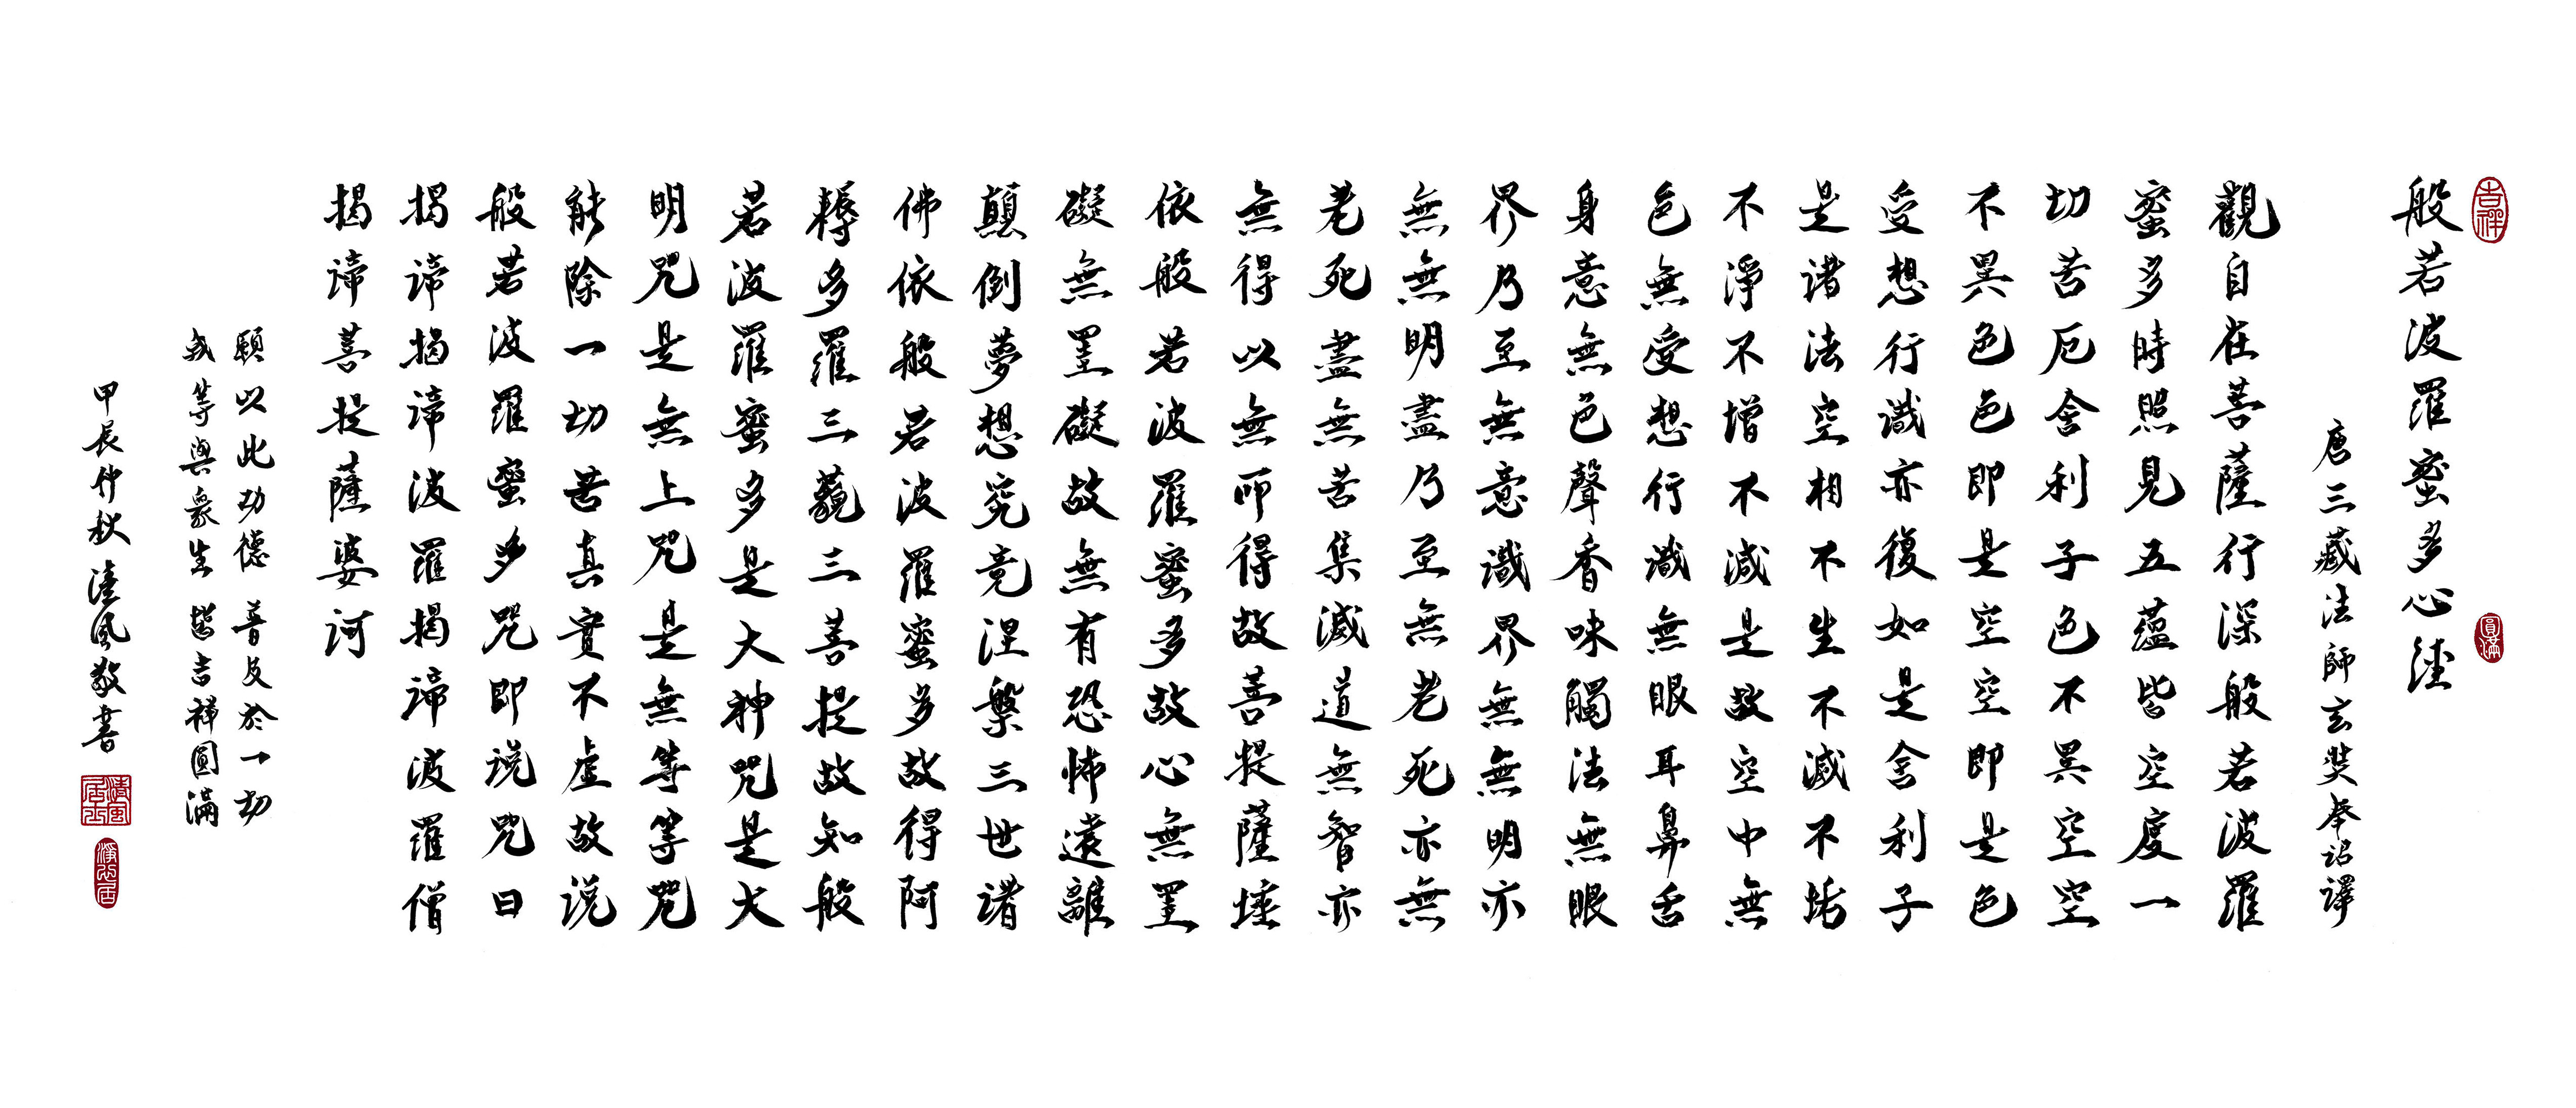 吉祥
般若波羅蜜多心經
圓滿
唐三藏法師玄奘奉詔譯
觀自在菩薩行深般若波羅
蜜多時照見五蘊皆空度一
切苦厄舍利子色不異空空
不異色色即是空空即是色
受想行識亦復如是舍利子
是諸法空相不生不滅不垢
不淨不增不減是故空中無
色無受想行識無眼耳鼻舌
身意無色聲香味觸法無眼
界乃至無意識界無無明亦
無無明盡乃至無老死亦無
老死盡無苦集滅道無智亦
無得以無所得故菩提薩埵
依般若波羅蜜多故心無罣
礙無罣礙故無有恐怖遠離
顛倒夢想究竟涅槃三世諸
佛依般若波羅蜜多故得阿
耨多羅三藐三菩提故知般
若波羅蜜多是大神咒是大
明咒是無上咒是無等等咒
能除一切苦真實不虛故說
般若波羅蜜多咒即說咒曰
揭諦揭諦波羅揭諦波羅僧
揭諦菩提薩婆訶
願以此功德 普及於一切
我等與眾生 皆吉祥圓滿
甲辰仲秋 清風敬書
清風居士
淨心居